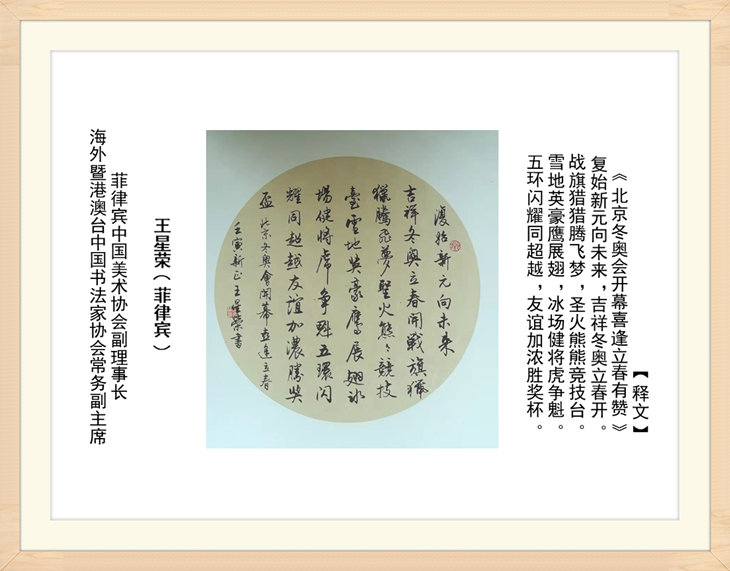 【释文】
《北京冬奥会开幕喜逢立春有赞》
复始新元向未来，吉祥冬奥立春开。
战旗猎猎腾飞梦，圣火熊熊竞技台。
雪地英豪鹰展翅，冰场健将虎争魁。
五环闪耀同超越，友谊加浓胜奖杯。
復始新元向未来
吉祥冬奥立春開戰旗獵
獵騰飛夢聖火熊々競技
臺雪地英豪鷹展翅冰
場健將虎争魁五環闪
耀同超越友谊加濃勝奖
盃 北京冬奥會開幕喜逢立春
壬寅新正王星榮書
王星荣（菲律宾）
菲律宾中国美术协会副理事长
海外暨港澳台中国书法家协会常务副主席